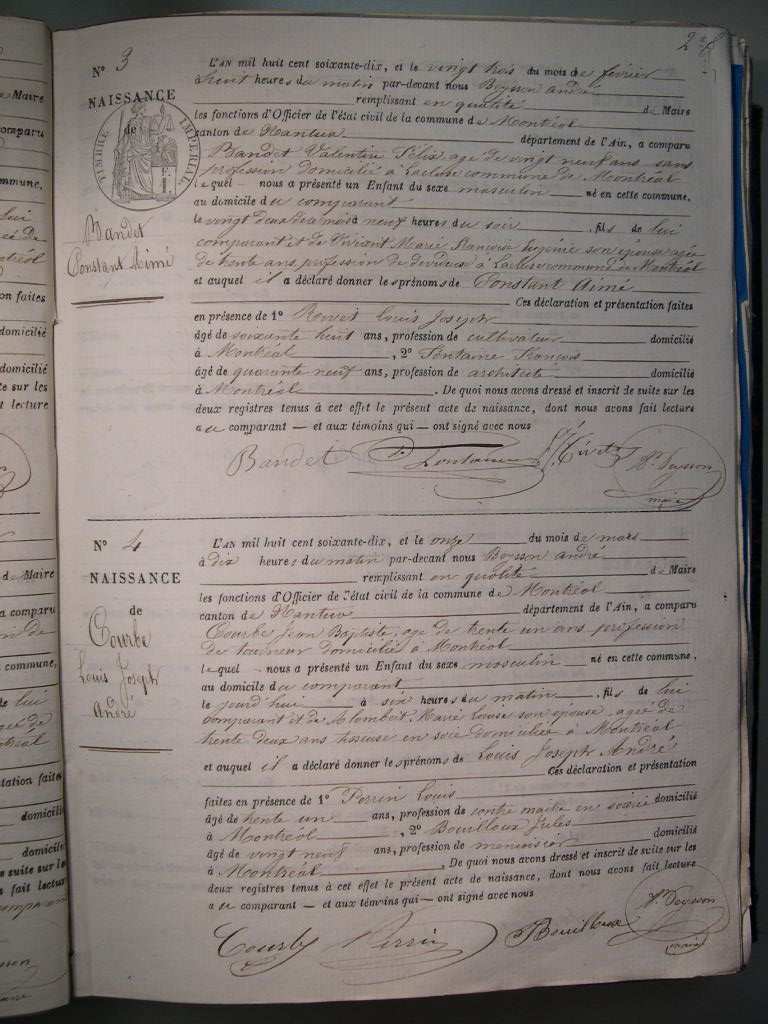 2
N° 3
NAISSANCE
de
TIMBRE IMPÉRIAL
Bandet
Constant Aimé
L'AN mil huit cent soixante-dix, et le vingt trois du mois de février
à huit heures du matin par-devant nous Boysson André
remplissant en qualité de Maire
les fonctions d'Officier de l'état civil de la commune de Montréal
canton de Nantua département de l'Ain, a comparu
Bandet Valentin Félix age de vingt neuf ans sans
profession domicilié à Lacluse commune de Montréal
lequel nous a présenté un Enfant du sexe masculin né en cette commune,
au domicile du comparant
le vingt deux du mois à neuf heures du soir, fils de lui
comparant et de Vivient Marie Françoise Eugénie son épouse agée
de trente ans, profession de domiciliée à Lacluse commune de Montréal
et auquel il a déclaré donner les prénoms de Constant Aimé
Ces déclaration et présentation faites
en présence de 1° Louis Joseph
âgé de soixante huit ans, profession de cultivateur domicilié
à Montréal, 2° Fontaine François
âgé de quarante neuf ans, profession de architecte domicilié
à Montréal. De quoi nous avons dressé et inscrit de suite sur les
deux registres tenus à cet effet le présent acte de naissance, dont nous avons fait lecture
a u comparant — et aux témoins qui — ont signé avec nous
Bandet Fontaine
maire
N° 4
NAISSANCE
de
Courbe
Louis Joseph
André
L'AN mil huit cent soixante-dix, et le onze du mois de mars
à dix heures du matin par-devant nous Boysson André
remplissant en qualité de Maire
les fonctions d'Officier de l'état civil de la commune de Montréal
canton de Nantua département de l'Ain, a comparu
Courbe Jean Baptiste, age de trente un ans profession
de tourneur domicilié à Montréal
lequel nous a présenté un Enfant du sexe masculin né en cette commune,
au domicile du comparant
le jourd'hui à six heures du matin, fils de lui
comparant et de Marie Louise son épouse, agée de
trente deux ans tisseuse en soie domiciliée à Montréal
et auquel il a déclaré donner les prénoms de Louis Joseph André
Ces déclaration et présentation
faites en présence de 1° Perrin Louis
âgé de trente un ans, profession de contre maitre en soierie domicilié
à Montréal, 2° Bouilloux Jules
âgé de vingt neuf ans, profession de menuisier domicilié
à Montréal. De quoi nous avons dressé et inscrit de suite sur les
deux registres tenus à cet effet le présent acte de naissance, dont nous avons fait lecture
a u comparant — et aux témoins qui — ont signé avec nous
Courbe Perrin Bouilloux
maire